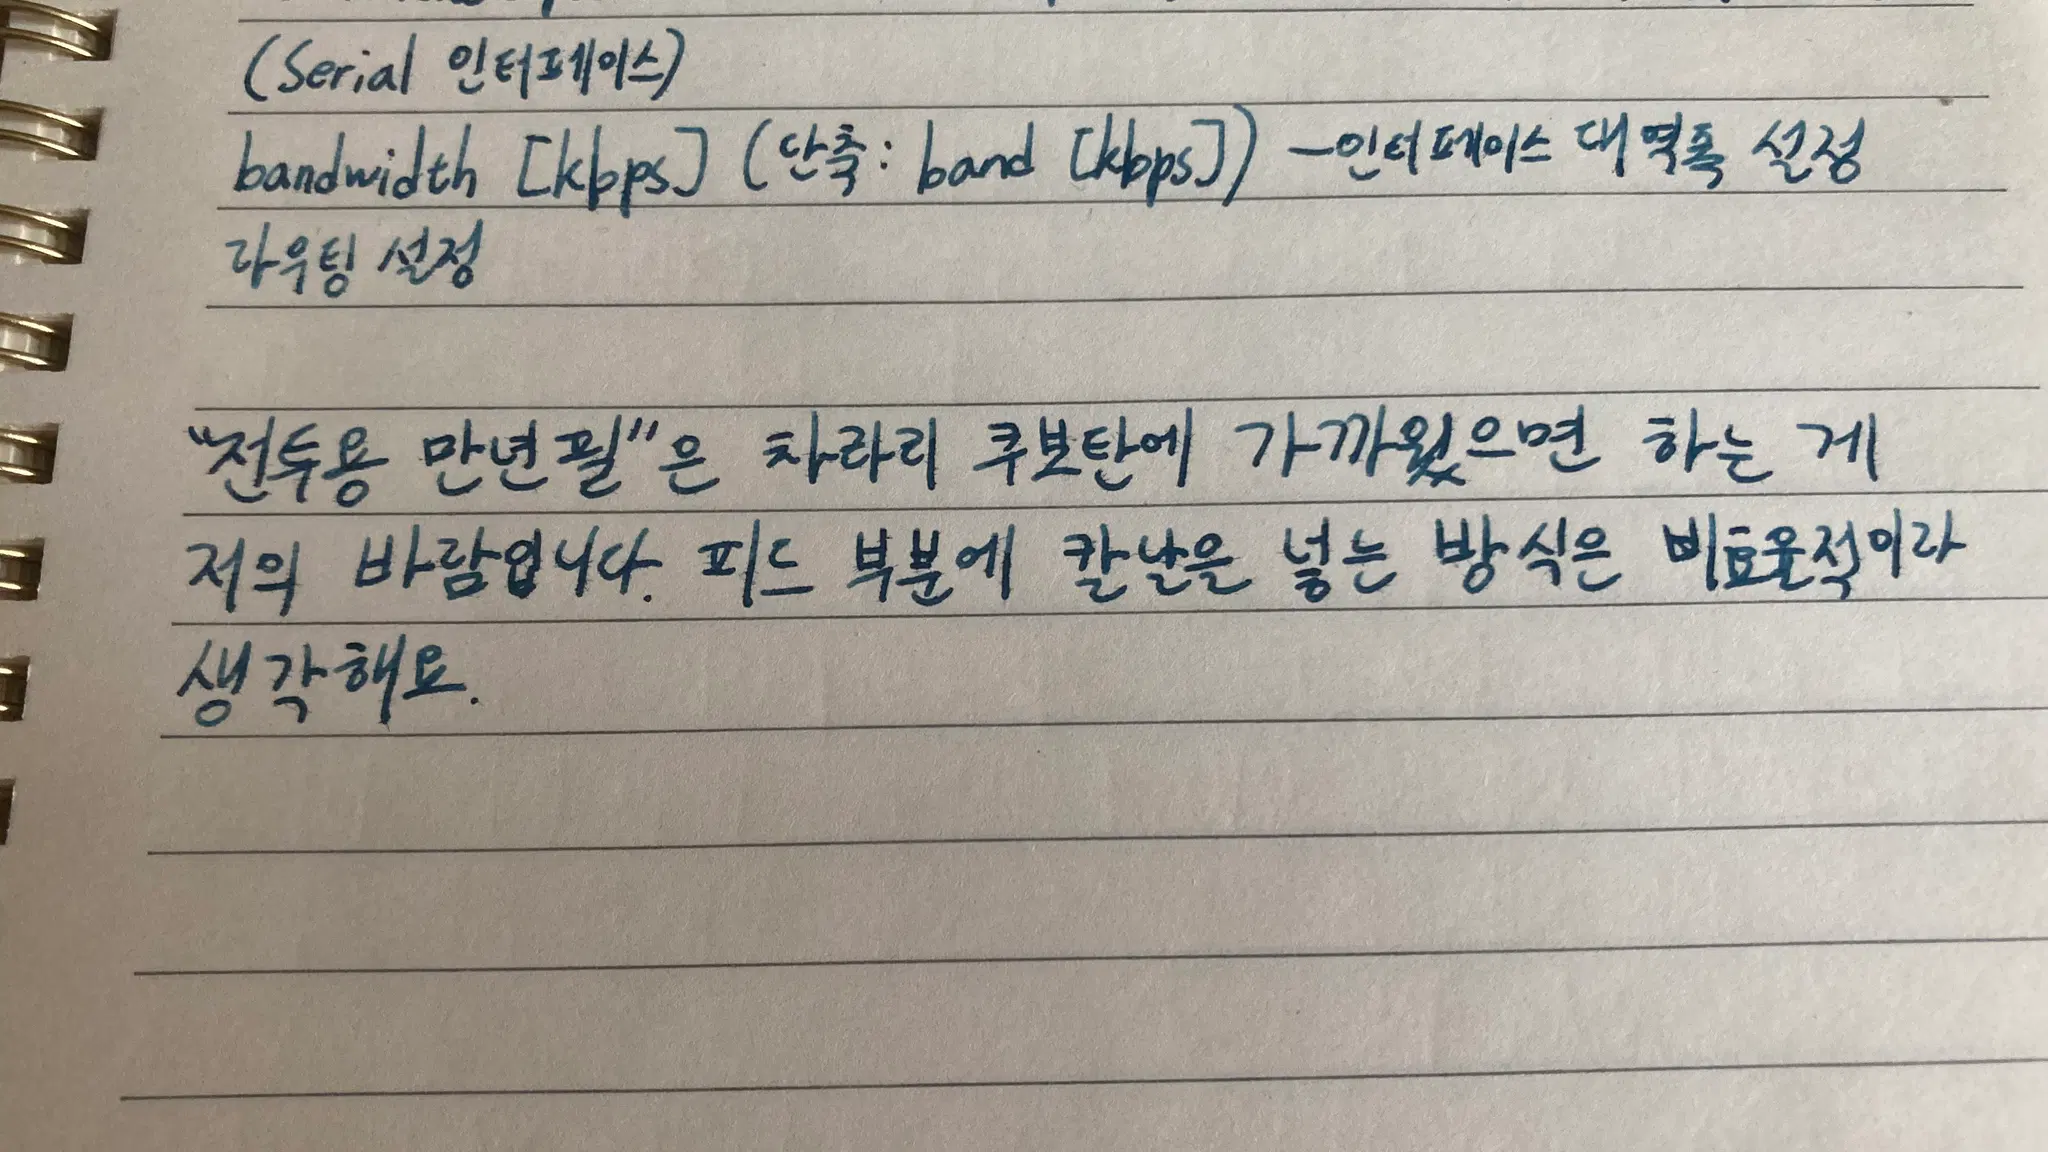 (Serial 인터페이스)
bandwidth [kbps] (단축: band [kbps]) -인터페이스 대역폭 설정
라우팅 설정
"전투용 만년필"은 차라리 쿠보탄에 가까웠으면 하는 게
저의 바람입니다. 피드 부분에 칼날을 넣는 방식은 비효율적이라
생각해요.